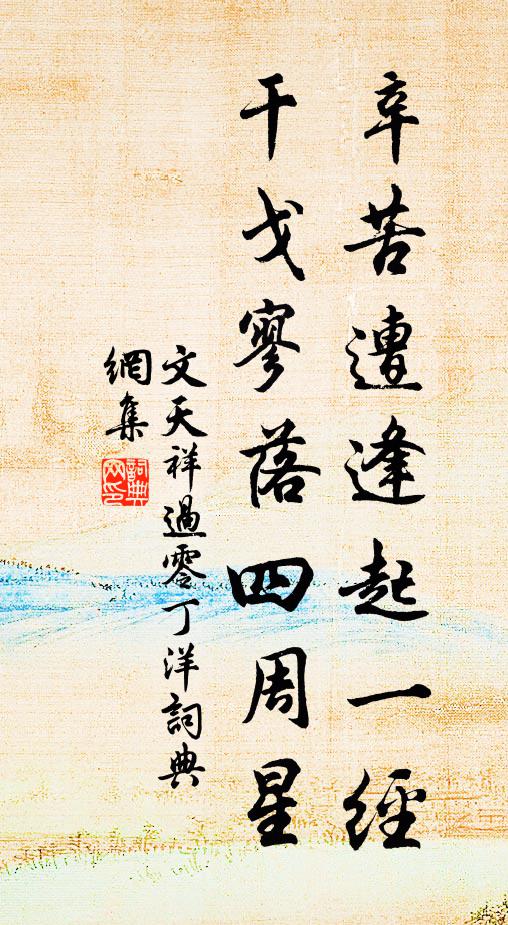 辛苦遭逢起一經
干戈寥落四周星
文天祥過零丁洋詞典
網集
詞典
网印